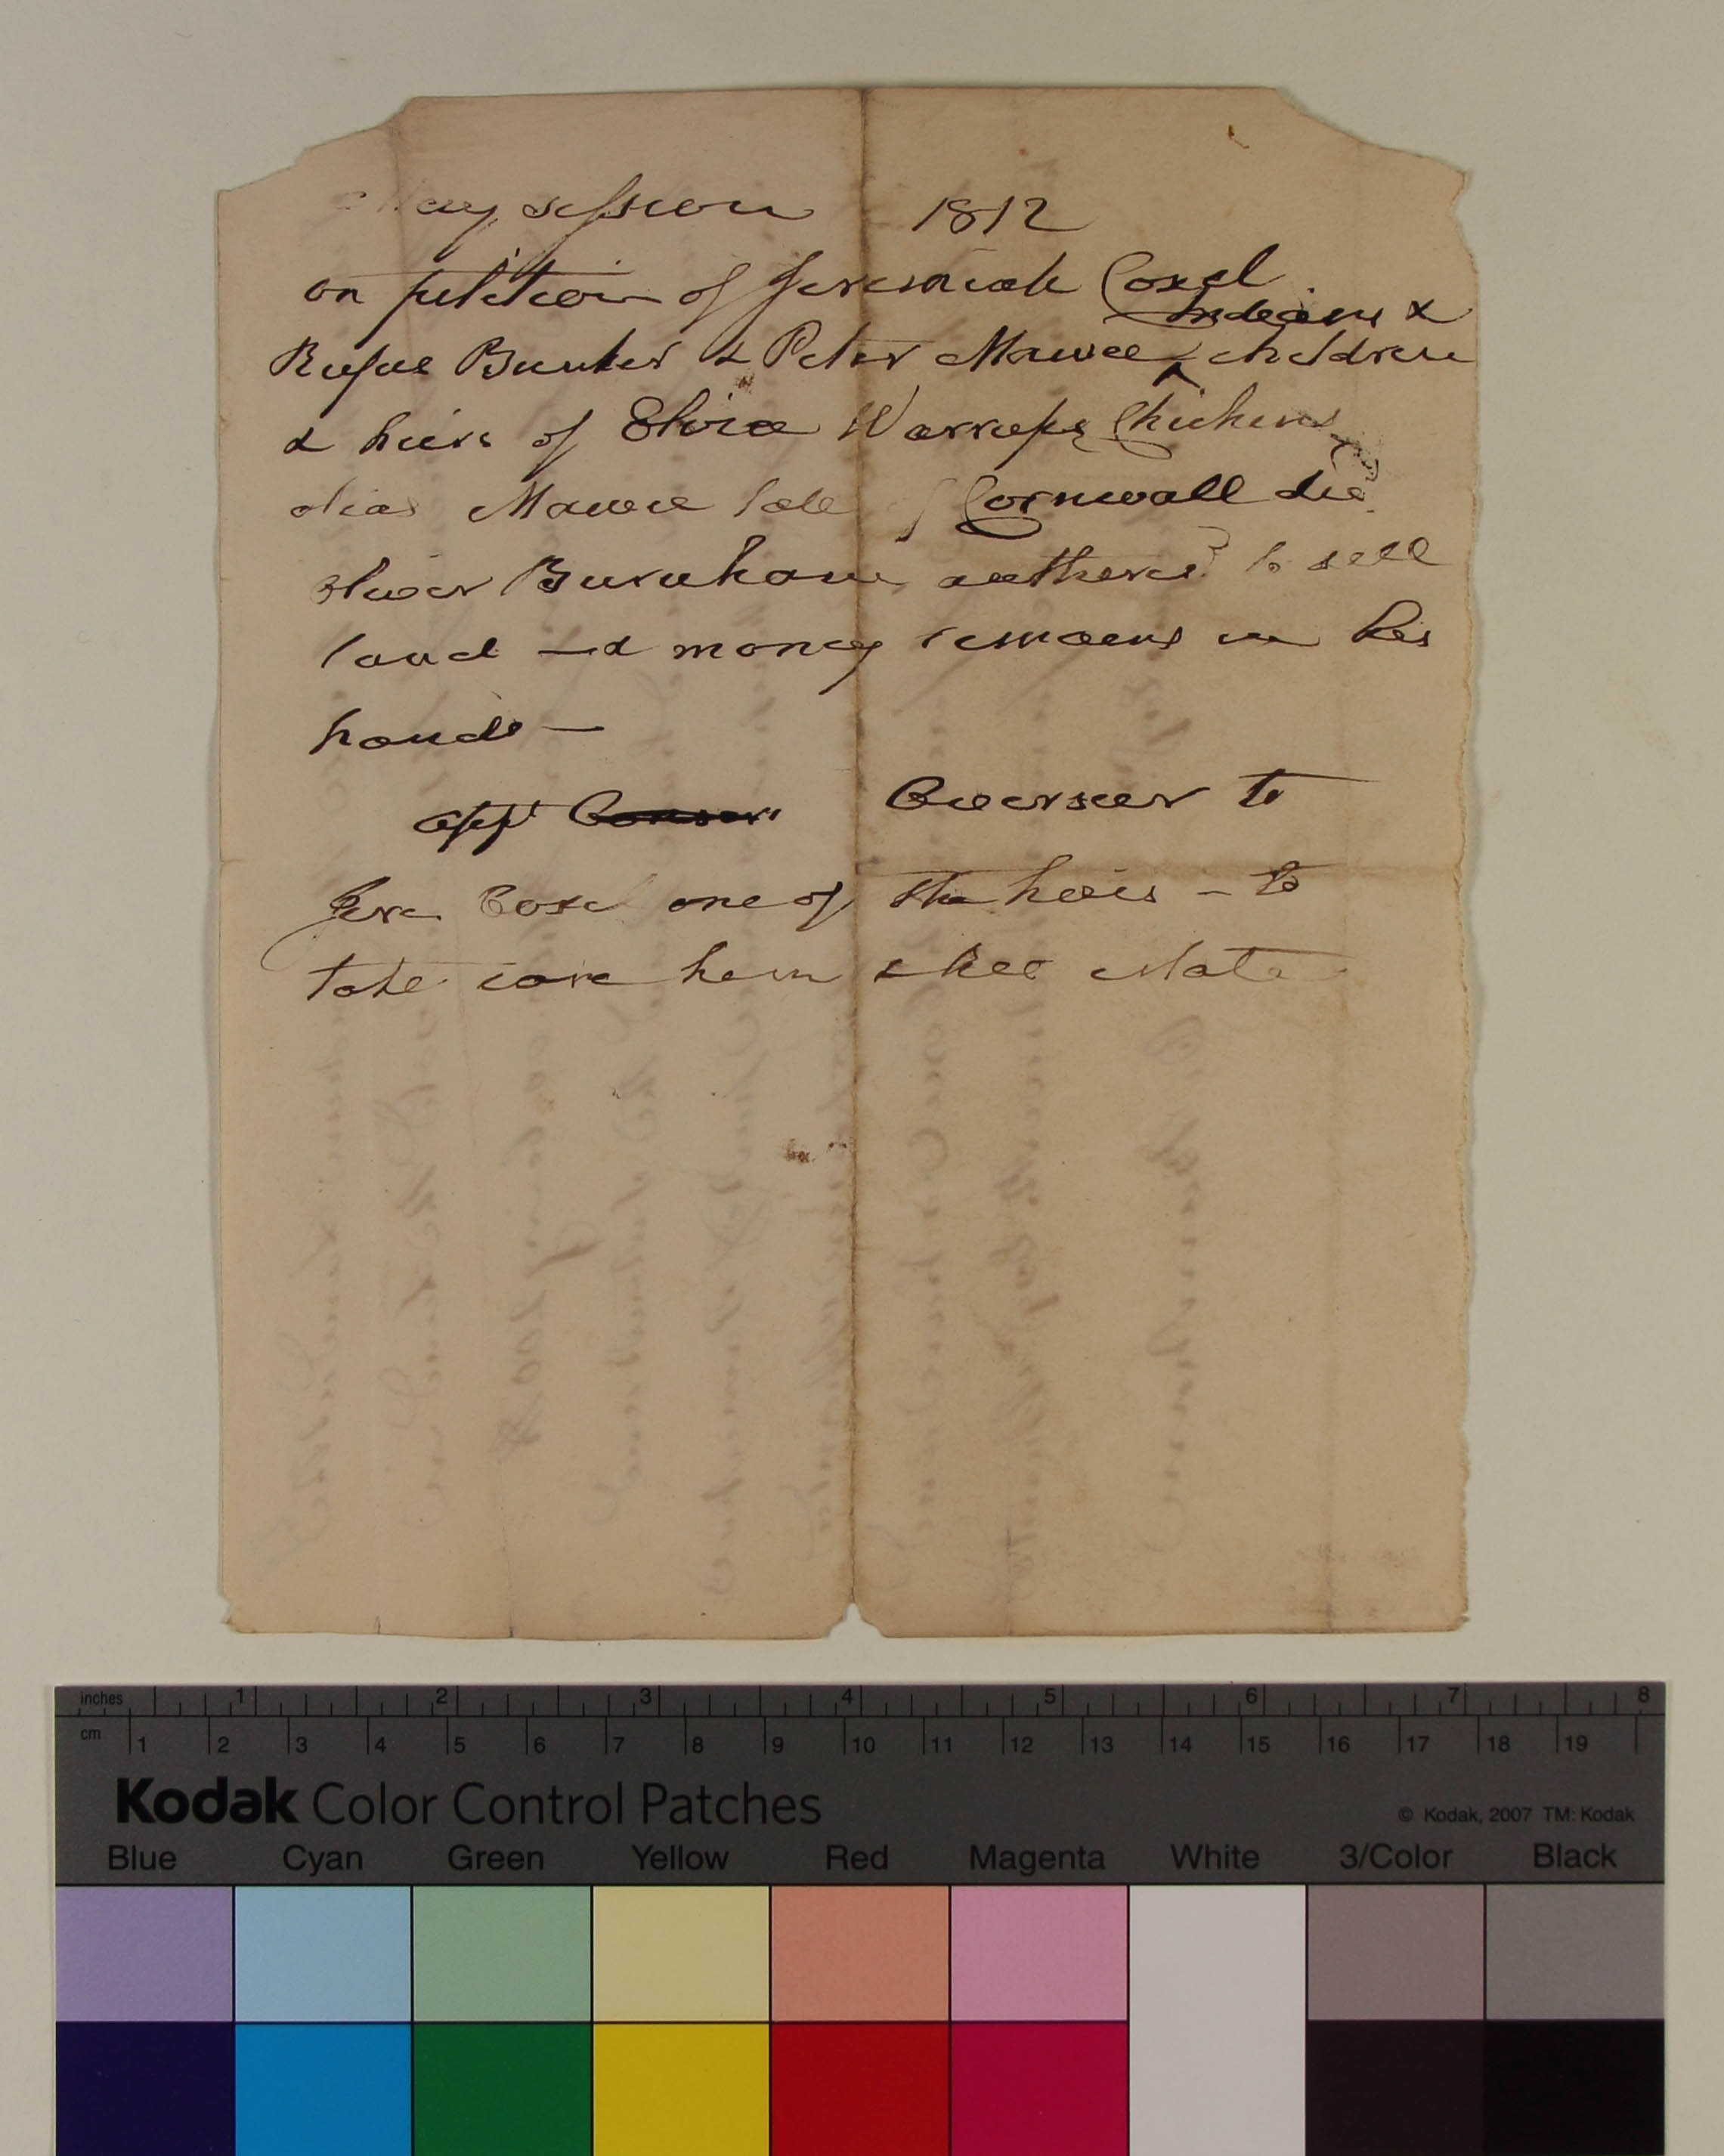 May session 1812
on petition of Jeremiah Coxel
Indians &
Rufus Bunker & Peter Mawee ^ children
& heirs of Elvira Warrops Chickens
alias Mawee late of Cornwall de
Oliver Burnham authorisd to sell
land – & money remains in his
hands –
appt Conser Overseer to
Jere Coxel one of the heirs – to
take care him & his estate
inches 1 2 3 4 5 6 7 8
cm 1 2 3 4 5 6 7 8 9 10 11 12 13 14 15 16 17 18 19
Kodak Color Control Patches
© Kodak, 2007 TM: Kodak
Blue Cyan Green Yellow Red Magenta White 3/Color Black